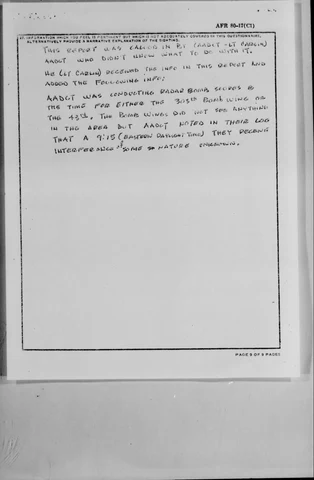 AFR 80-17(C1)
INFORMATION WHICH YOU FEEL IS PERTINENT BUT WHICH IS NOT ADEQUATELY COVERED IN THIS QUESTIONNAIRE,
ALTERNATIVELY PROVIDE A NARRATIVE EXPLANATION OF THE SIGHTING.
THIS REPORT WAS CALLED IN BY (AADCT - LT CARLIN)
AADCT WHO DIDN'T KNOW WHAT TO DO WITH IT.
HE (LT CARLIN) RECEIVED THE INFO IN THIS REPORT AND
ADDED THE FOLLOWING INFO:
AADCT WAS CONDUCTING RADAR BOMB SCORES @
THE TIME FOR EITHER THE BOMB WING OR
THE 43th. THE BOMB WINGS DID NOT SEE ANYTHING
IN THE AREA BUT AADCT NOTED IN THEIR LOG
THAT A 9:15 (EASTERN DAYLIGHT TIME) THEY RECEIVE
INTERFERANCE OF SOME NATURE UNKNOWN.
PAGE 5 OF 5 PAGES